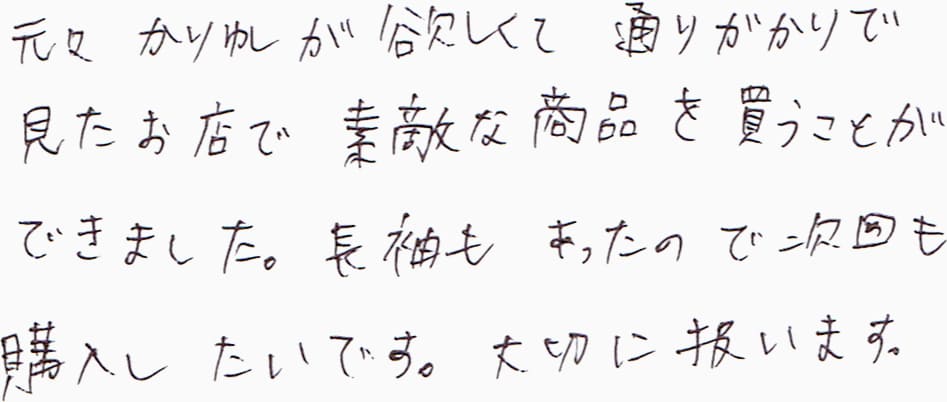 元々 かりゆしが欲しくて 通りがかりで
見たお店で 素敵な商品を買うことが
できました。長袖も あったので次回も
購入し たいです。大切に扱います。